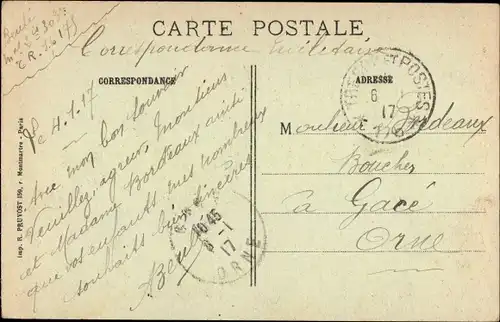 CARTE POSTALE
Correspondance militaire
CORRESPONDANCE
ADRESSE
le 4.1.17
Avec mon bon souvenir
Veuillez, agréer, Monsieur
et Madame Bordeaux ainsi
que vos enfants, mes nombreux
souhaits bien sincères
TRESOR ET POSTES
6
17
10 45
6 - 1
17
ORNE
Monsieur Bordeaux
Boucher
à Gacé
Orne
Imp. R. PRUVOST 159, r. Montmartre, Paris